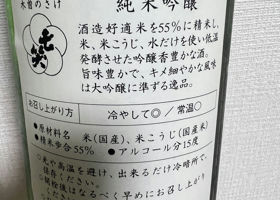 木曽のさけ
七笑
純米吟醸
酒造好適米を55%に精米し、
米、米こうじ、水だけを使い低温
発酵させた吟醸香豊かな酒。
旨味豊かで、キメ細やかな風味
は大吟醸に準ずる逸品。
お召し上がり方 冷やして◎／常温○
●原材料名 米(国産)、米こうじ(国産米)
●精米歩合55% ●アルコール分15度
○光や高温を避け、出来るだけ冷暗所で
保存ください。
○開栓後はなるべく早めにお召し上がり